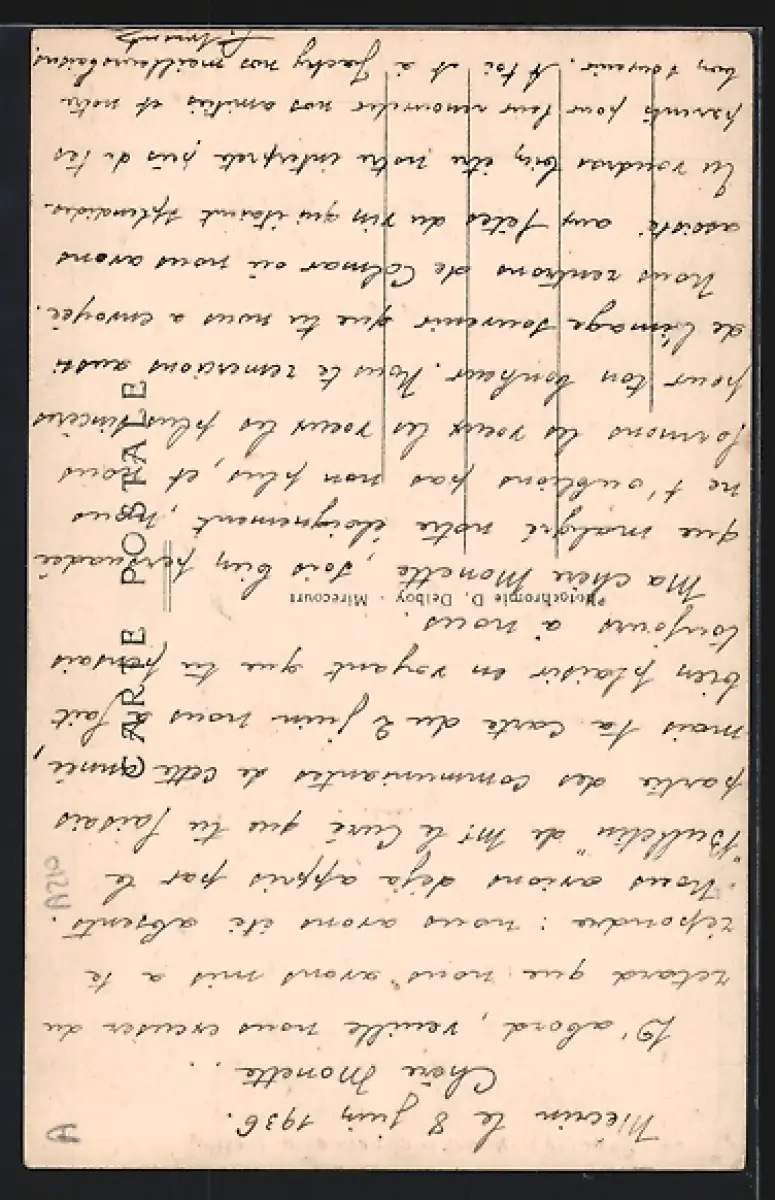 le 8 juin 1936.
Chère Monette.
D'abord, veuille nous excuser du
retard que nous avons mis a te
répondre : nous avons été absents.
Nous avions déja appris par le
"Bulletin" de Mr le Curé que tu faisais
partie des communiantes de cette année,
mais ta carte du 2 juin nous a fait
bien plaisir en voyant que tu pensais
toujours à nous.
Ma chère Monette, sois bien persuadée
que malgré notre éloignement, nous
ne t'oublions pas non plus, et nous
formons les voeux les plus sincères
pour ton bonheur. Nous te remercions aussi
de l'image souvenir que tu nous a envoyée.
Nous rentrons de Colmar où nous avons
assisté aux fêtes du vin qui étaient splendides.
Tu voudras bien être notre interprète près de tes
parents pour leur renouveler nos amitiés et notre
bon souvenir. A toi et à Jacky nos meilleurs baisers.
CARTE POSTALE
Photochromie D. Delboy - Mirecourt
A210
A